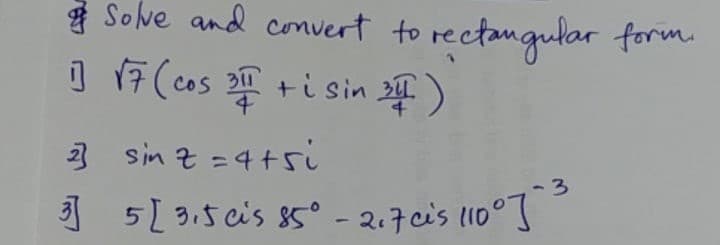 Solve and convert to rectangular form.
1] √7 (cos 3π/4 + i sin 3π/4)
2] sin z = 4+5i
3] 5[3.5 cis 85° - 2.7 cis 110°]⁻³